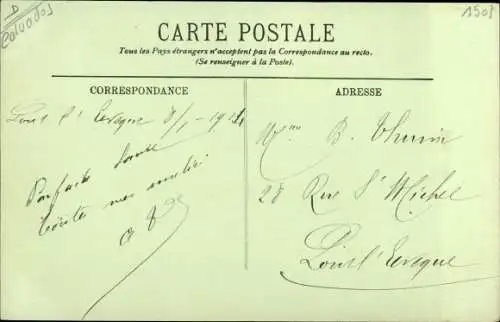 D
Calvados
1508
CARTE POSTALE
Tous les Pays étrangers n'acceptent pas la Correspondance au recto.
(Se renseigner à la Poste).
CORRESPONDANCE
ADRESSE
Pont l'Eveque 8/1-
Parfaite Santé
Toutes nos amitiés
Mme B.
28 Rue St Michel
Pont l'Eveque